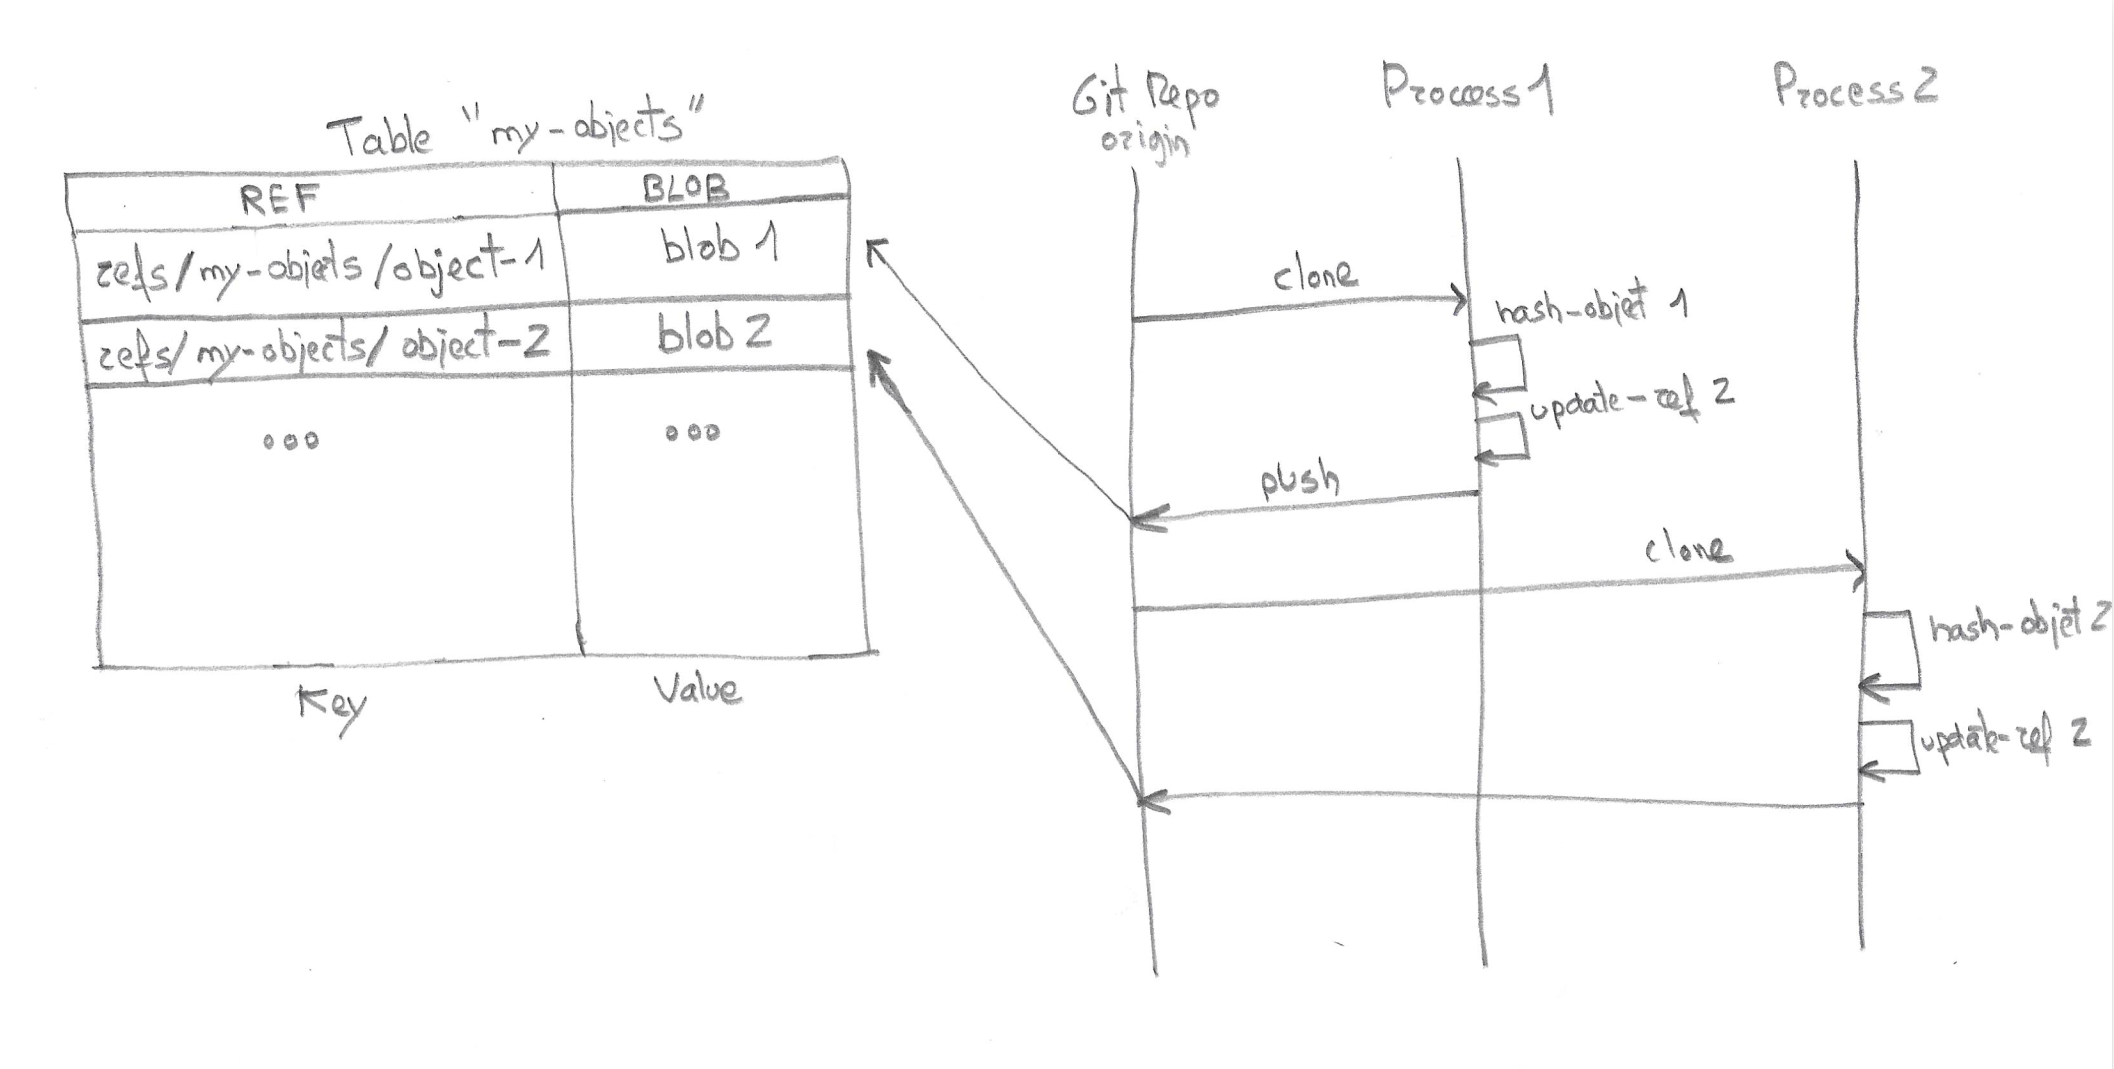 Table "my-objects"
REF BLOB
refs/my-objets/object-1 blob 1
refs/my-objects/object-2 blob 2
ooo ooo
Key Value
Git Repo
origin
Proccess 1
Process 2
clone
hash-objet 1
update-ref 2
push
clone
hash-objet 2
update-ref 2